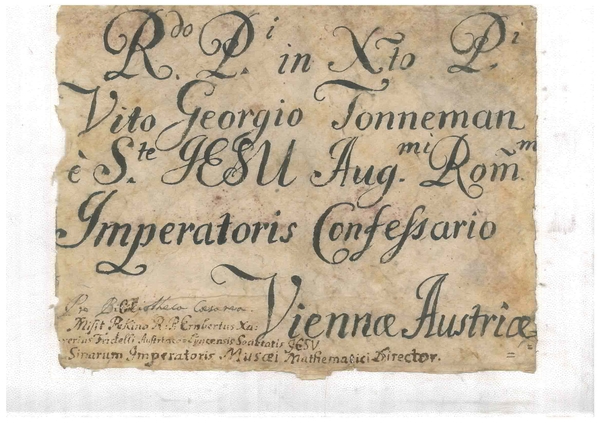 R.do P.i in Xto P.i
Vito Georgio Tonneman
è S.te JESU Aug.mi Rom̃.m
Imperatoris Confessario
Viennæ Austriæ
Pro Bibliotheca Cæsarea
Misit Pekino R. P. Ernbertus Xa=
verius Fridelli Austriacus Lincensis Societatis JESU
Sinarum Imperatoris Musæi Mathematici Director.